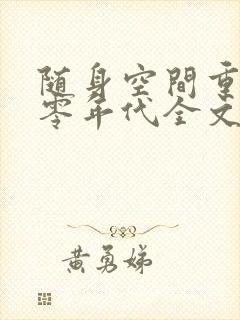 随身空間重
零年代全文
黄勇娣